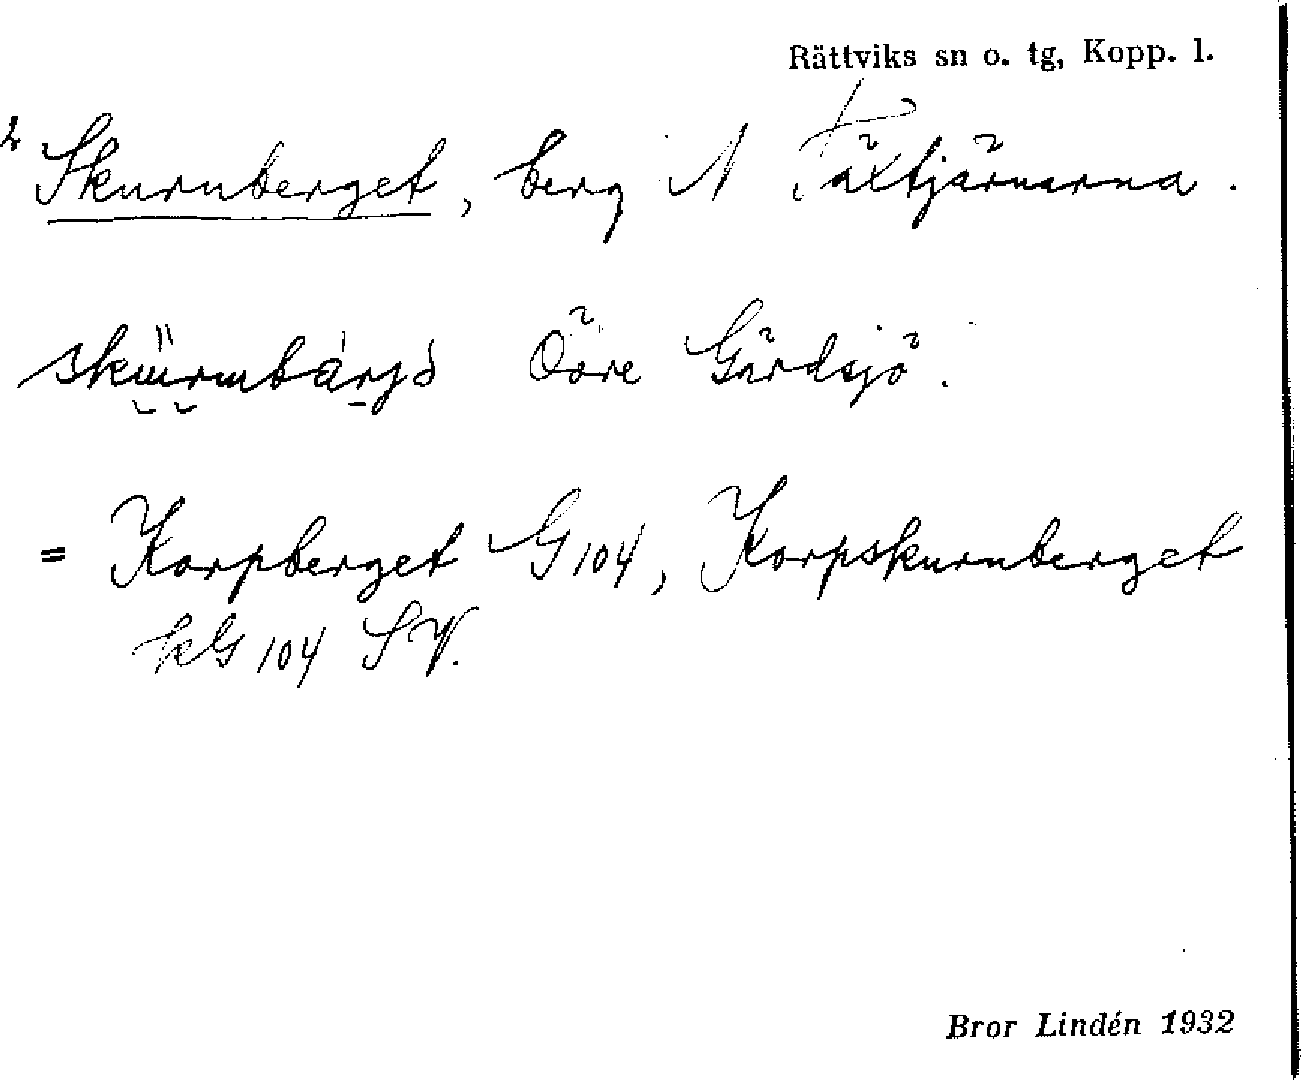 Rättviks sn o. tg, Kopp. l.
2 Skurnberget, berg N Täxtjärnarna.
Övre Gärdsjö.
= Korpberget G104, Korpskurnberget
kG 104 SV.
Bror Lindén 1932